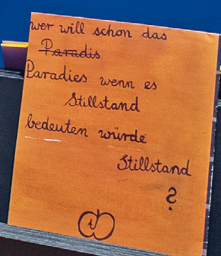 wer will schon das
~~Paradis~~
Paradies wenn es
Stillstand
bedeuten würde
Stillstand
?